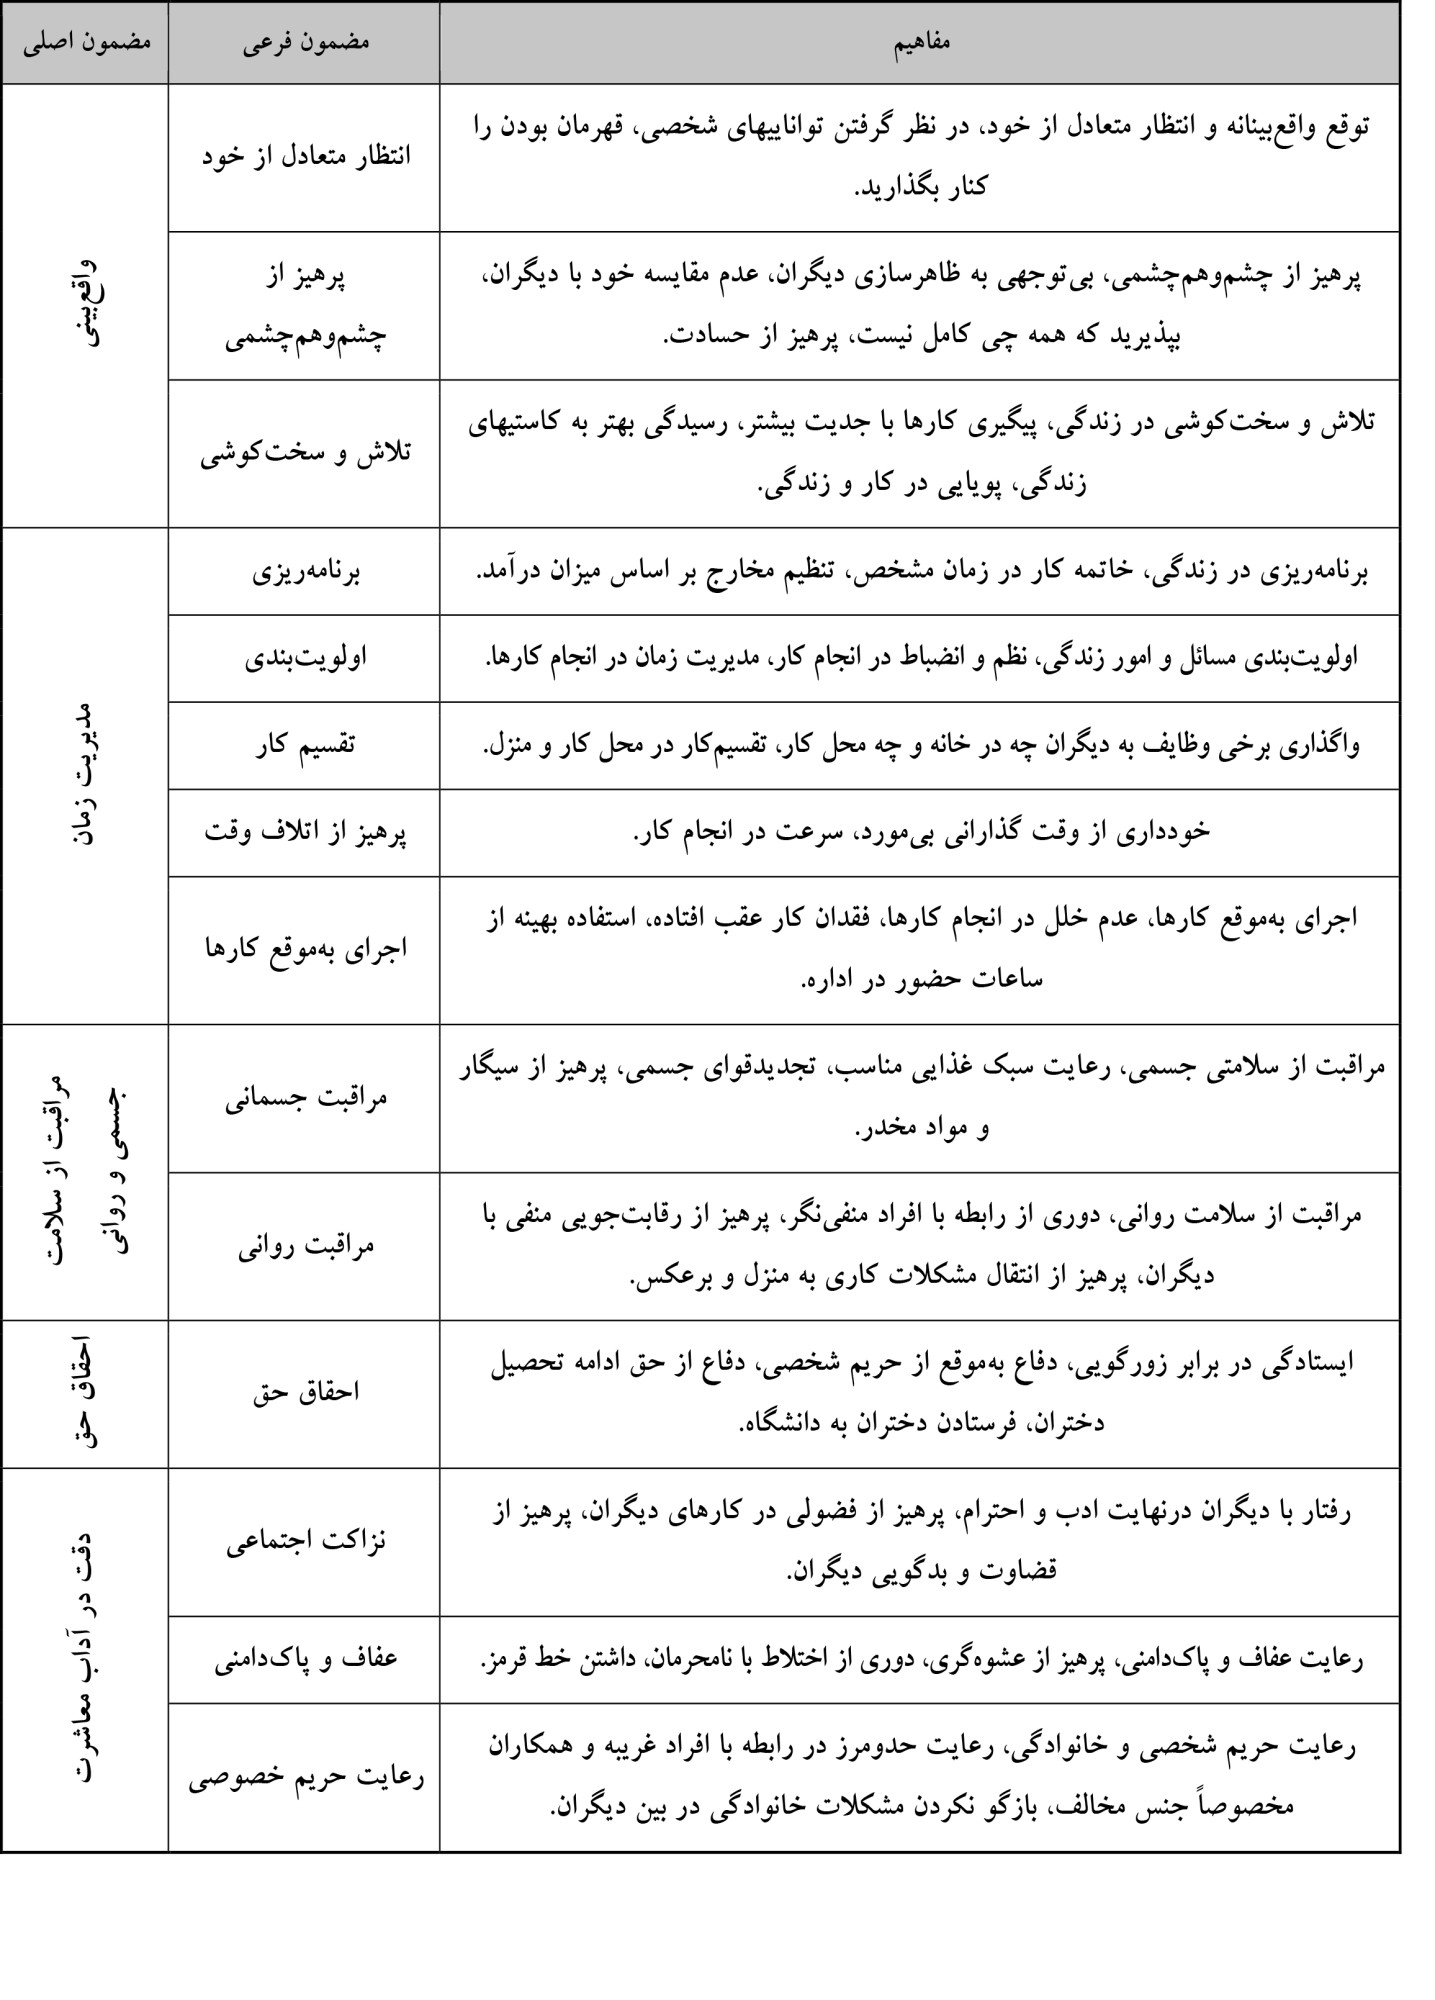 مفاهیم
مضمون فرعی
مضمون اصلی
توقع واقع‌بینانه و انتظار متعادل از خود، در نظر گرفتن تواناییهای شخصی، قهرمان بودن را
کنار بگذارید.
انتظار متعادل از خود
واقع‌بینی
پرهیز از چشم‌وهم‌چشمی، بی‌توجهی به ظاهرسازی دیگران، عدم مقایسه خود با دیگران،
بپذیرید که همه چی کامل نیست، پرهیز از حسادت.
پرهیز از
چشم‌وهم‌چشمی
تلاش و سخت‌کوشی در زندگی، پیگیری کارها با جدیت بیشتر، رسیدگی بهتر به کاستیهای
زندگی، پویایی در کار و زندگی.
تلاش و سخت‌کوشی
برنامه‌ریزی در زندگی، خاتمه کار در زمان مشخص، تنظیم مخارج بر اساس میزان درآمد.
برنامه‌ریزی
مدیریت زمان
اولویت‌بندی مسائل و امور زندگی، نظم و انضباط در انجام کار، مدیریت زمان در انجام کارها.
اولویت‌بندی
واگذاری برخی وظایف به دیگران چه در خانه و چه محل کار، تقسیم‌کار در محل کار و منزل.
تقسیم کار
خودداری از وقت گذارانی بی‌مورد، سرعت در انجام کار.
پرهیز از اتلاف وقت
اجرای به‌موقع کارها، عدم خلل در انجام کارها، فقدان کار عقب افتاده، استفاده بهینه از
ساعات حضور در اداره.
اجرای به‌موقع کارها
مراقبت از سلامتی جسمی، رعایت سبک غذایی مناسب، تجدیدقوای جسمی، پرهیز از سیگار
و مواد مخدر.
مراقبت جسمانی
مراقبت از سلامت
جسمی و روانی
مراقبت از سلامت روانی، دوری از رابطه با افراد منفی‌نگر، پرهیز از رقابت‌جویی منفی با
دیگران، پرهیز از انتقال مشکلات کاری به منزل و برعکس.
مراقبت روانی
ایستادگی در برابر زورگویی، دفاع به‌موقع از حریم شخصی، دفاع از حق ادامه تحصیل
دختران، فرستادن دختران به دانشگاه.
احقاق حق
احقاق حق
رفتار با دیگران درنهایت ادب و احترام، پرهیز از فضولی در کارهای دیگران، پرهیز از
قضاوت و بدگویی دیگران.
نزاکت اجتماعی
دقت در آداب معاشرت
رعایت عفاف و پاک‌دامنی، پرهیز از عشوه‌گری، دوری از اختلاط با نامحرمان، داشتن خط قرمز.
عفاف و پاک‌دامنی
رعایت حریم شخصی و خانوادگی، رعایت حدومرز در رابطه با افراد غریبه و همکاران
مخصوصاً جنس مخالف، بازگو نکردن مشکلات خانوادگی در بین دیگران.
رعایت حریم خصوصی